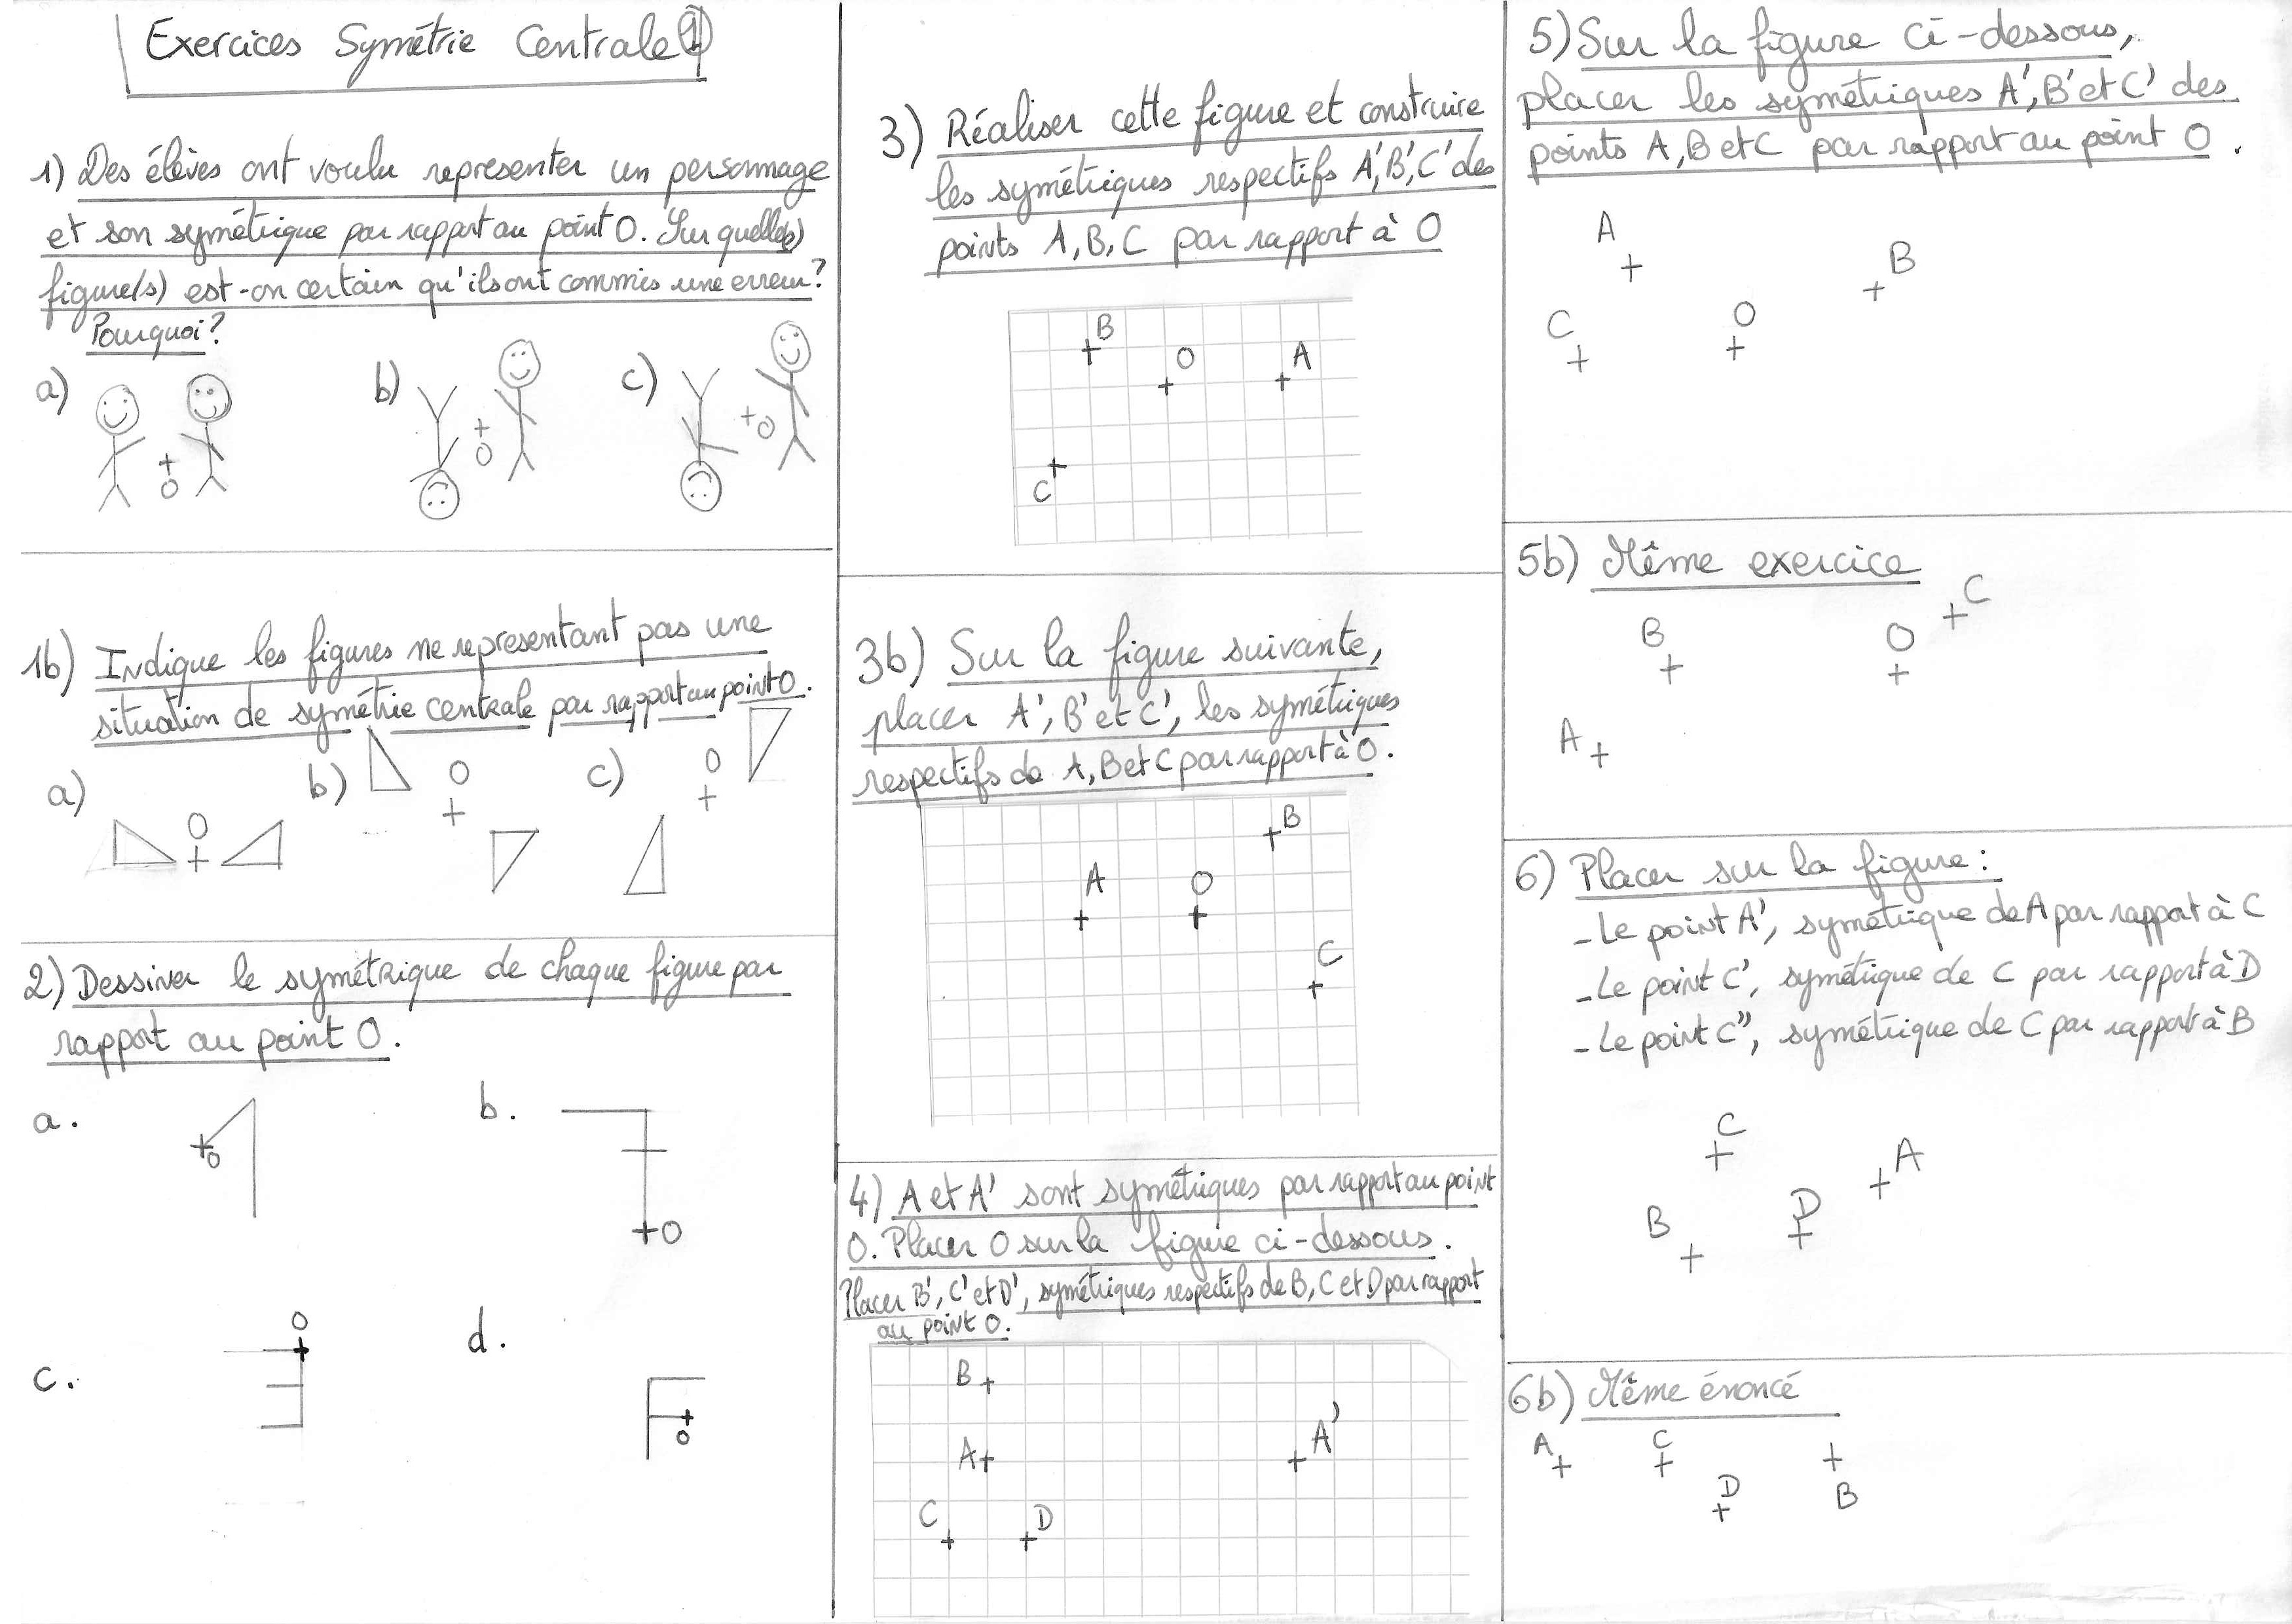 Exercices Symétrie Centrale ①
1) Des élèves ont voulu representer un personnage
et son symétrique par rapport au point O. Sur quelle(s)
figure(s) est-on certain qu'ils ont commis une erreur?
Pourquoi?
a)
O
b)
O
c)
O
1b) Indique les figures ne representant pas une
situation de symétrie centrale par rapport au point O.
a)
O
b)
O
c)
O
2) Dessiner le symétrique de chaque figure par
rapport au point O.
a.
O
b.
O
c.
O
d.
O
3) Réaliser cette figure et construire
les symétriques respectifs A', B', C' des
points A, B, C par rapport à O
B
O
A
C
3b) Sur la figure suivante,
placer A', B' et C', les symétriques
respectifs de A, B et C par rapport à O.
B
A
O
C
4) A et A' sont symétriques par rapport au point
O. Placer O sur la figure ci-dessous.
Placer B', C' et D', symétriques respectifs de B, C et D par rapport
au point O.
B
A
A'
C
D
5) Sur la figure ci-dessous,
placer les symétriques A', B' et C' des
points A, B et C par rapport au point O.
A
B
C
O
5b) Même exercice
C
B
O
A
6) Placer sur la figure :
- Le point A', symétrique de A par rapport à C
- Le point C', symétrique de C par rapport à D
- Le point C'', symétrique de C par rapport à B
C
A
B
D
6b) Même énoncé
A
C
D
B